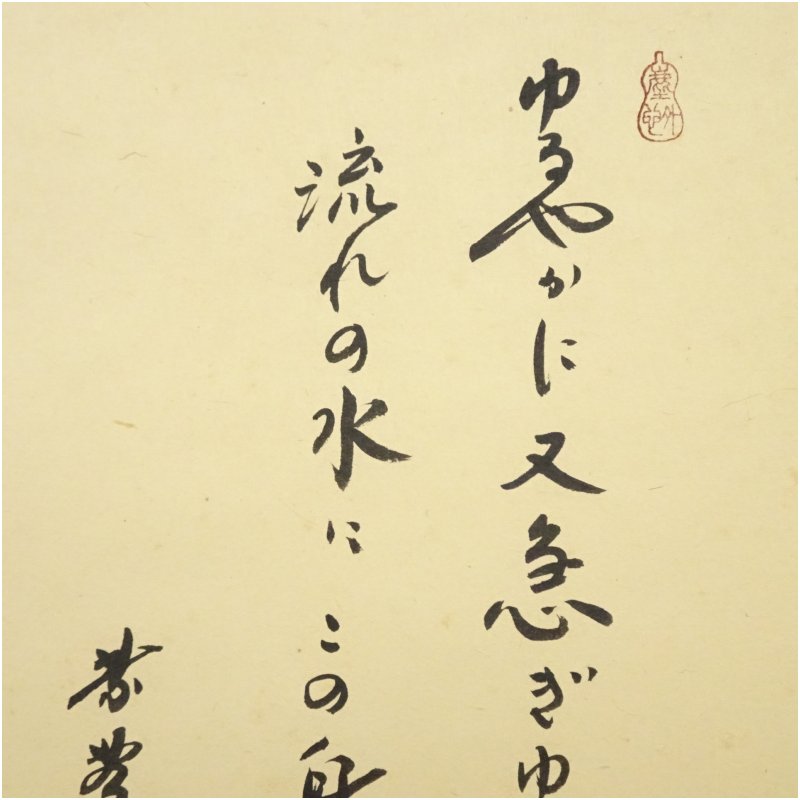 ゆるやかに又急ぎゆ
流れの水にこの身